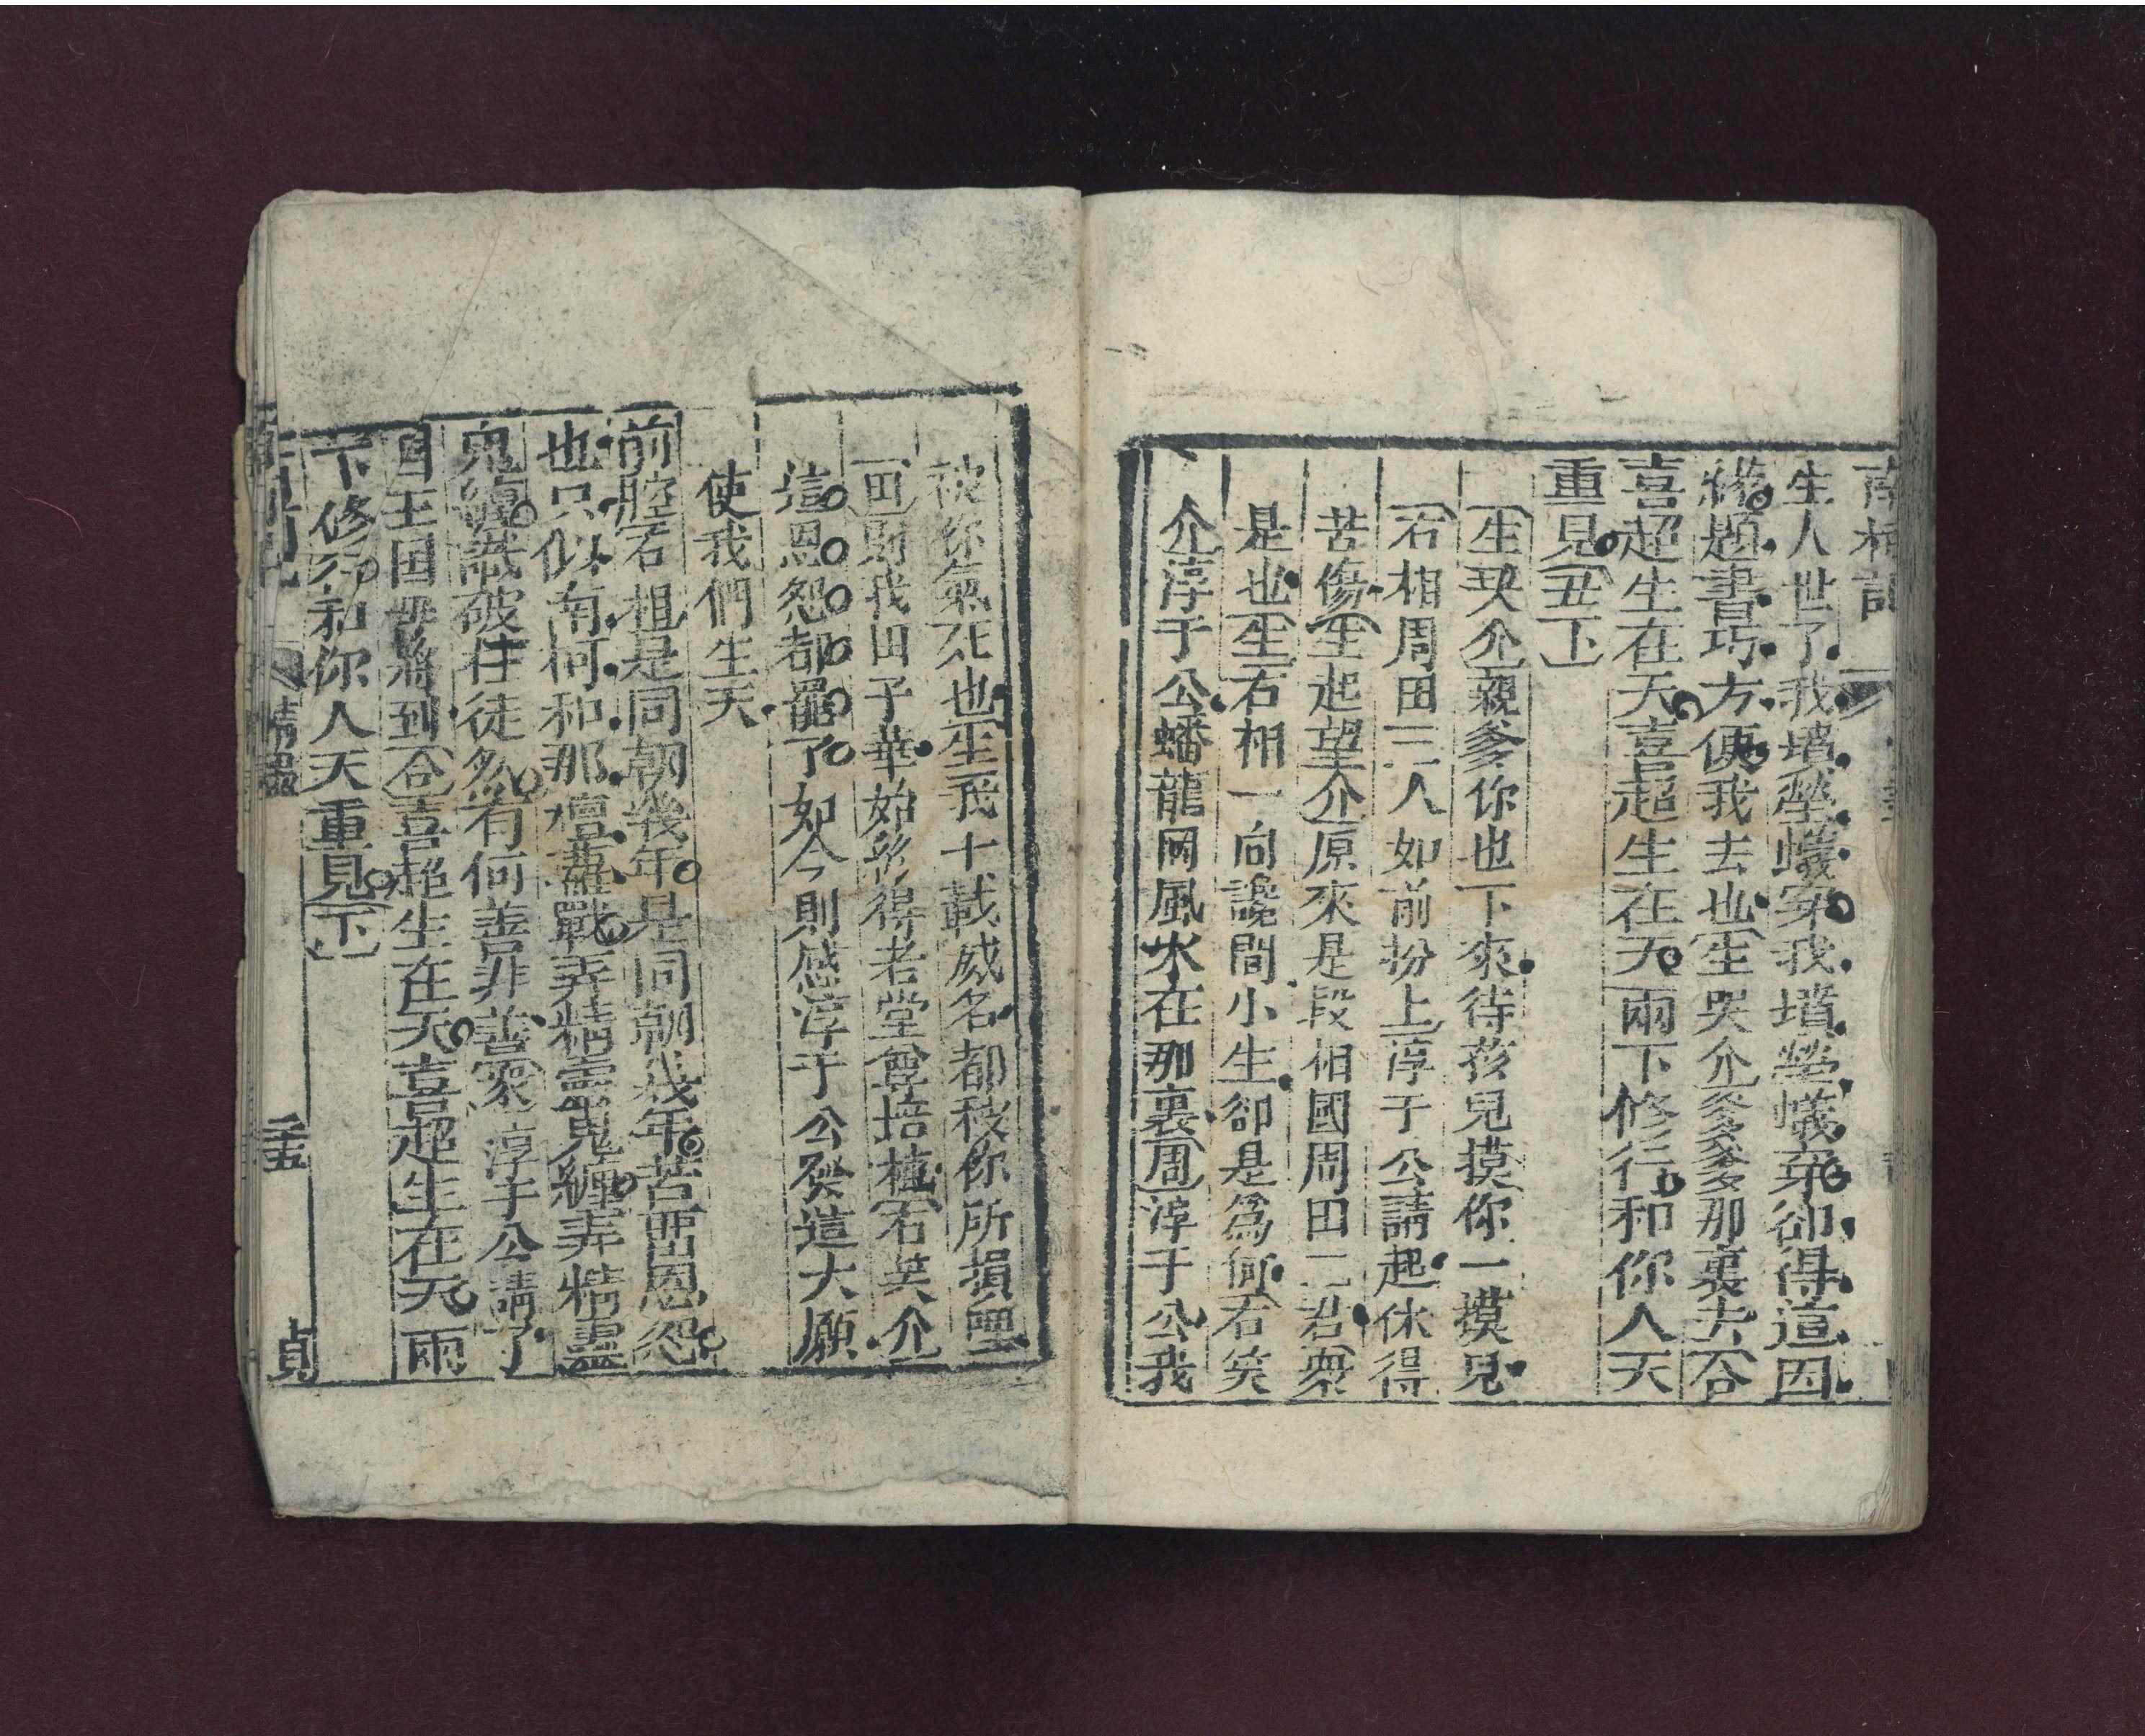 南柯記
生人世了我墳塋蟻穿我墳塋蟻穿卻得這因
緣題書巧方便我去也生哭介爹爹爹那裏去合
喜超生在天喜超生在天兩下修行和你人天
重見丑下
生哭介親爹你也下來待孩兒摸你一摸兒
右相周田三人如前扮上淳于公請起休得
苦傷生起望介原來是段相國周田二君衆
是也生右相一向讒間小生卻是爲何右笑
介淳于公蟠龍岡風水在那裏周淳于公我
被你氣死也生我十載威名都被你所損
田則我田子華始終得老堂尊培植右笑介
這恩怨都罷了如今則感淳于公發這大願
使我們生天
前腔右相是同朝幾年是同朝幾年苦噩恩怨
也只似南柯和那檀蘿戰弄精靈鬼纏弄精靈
鬼纏識破枉徒然有何善非善衆淳于公請了
國王國母將到合喜超生在天喜超生在天兩
下修行和你人天重見下
情盡
貞